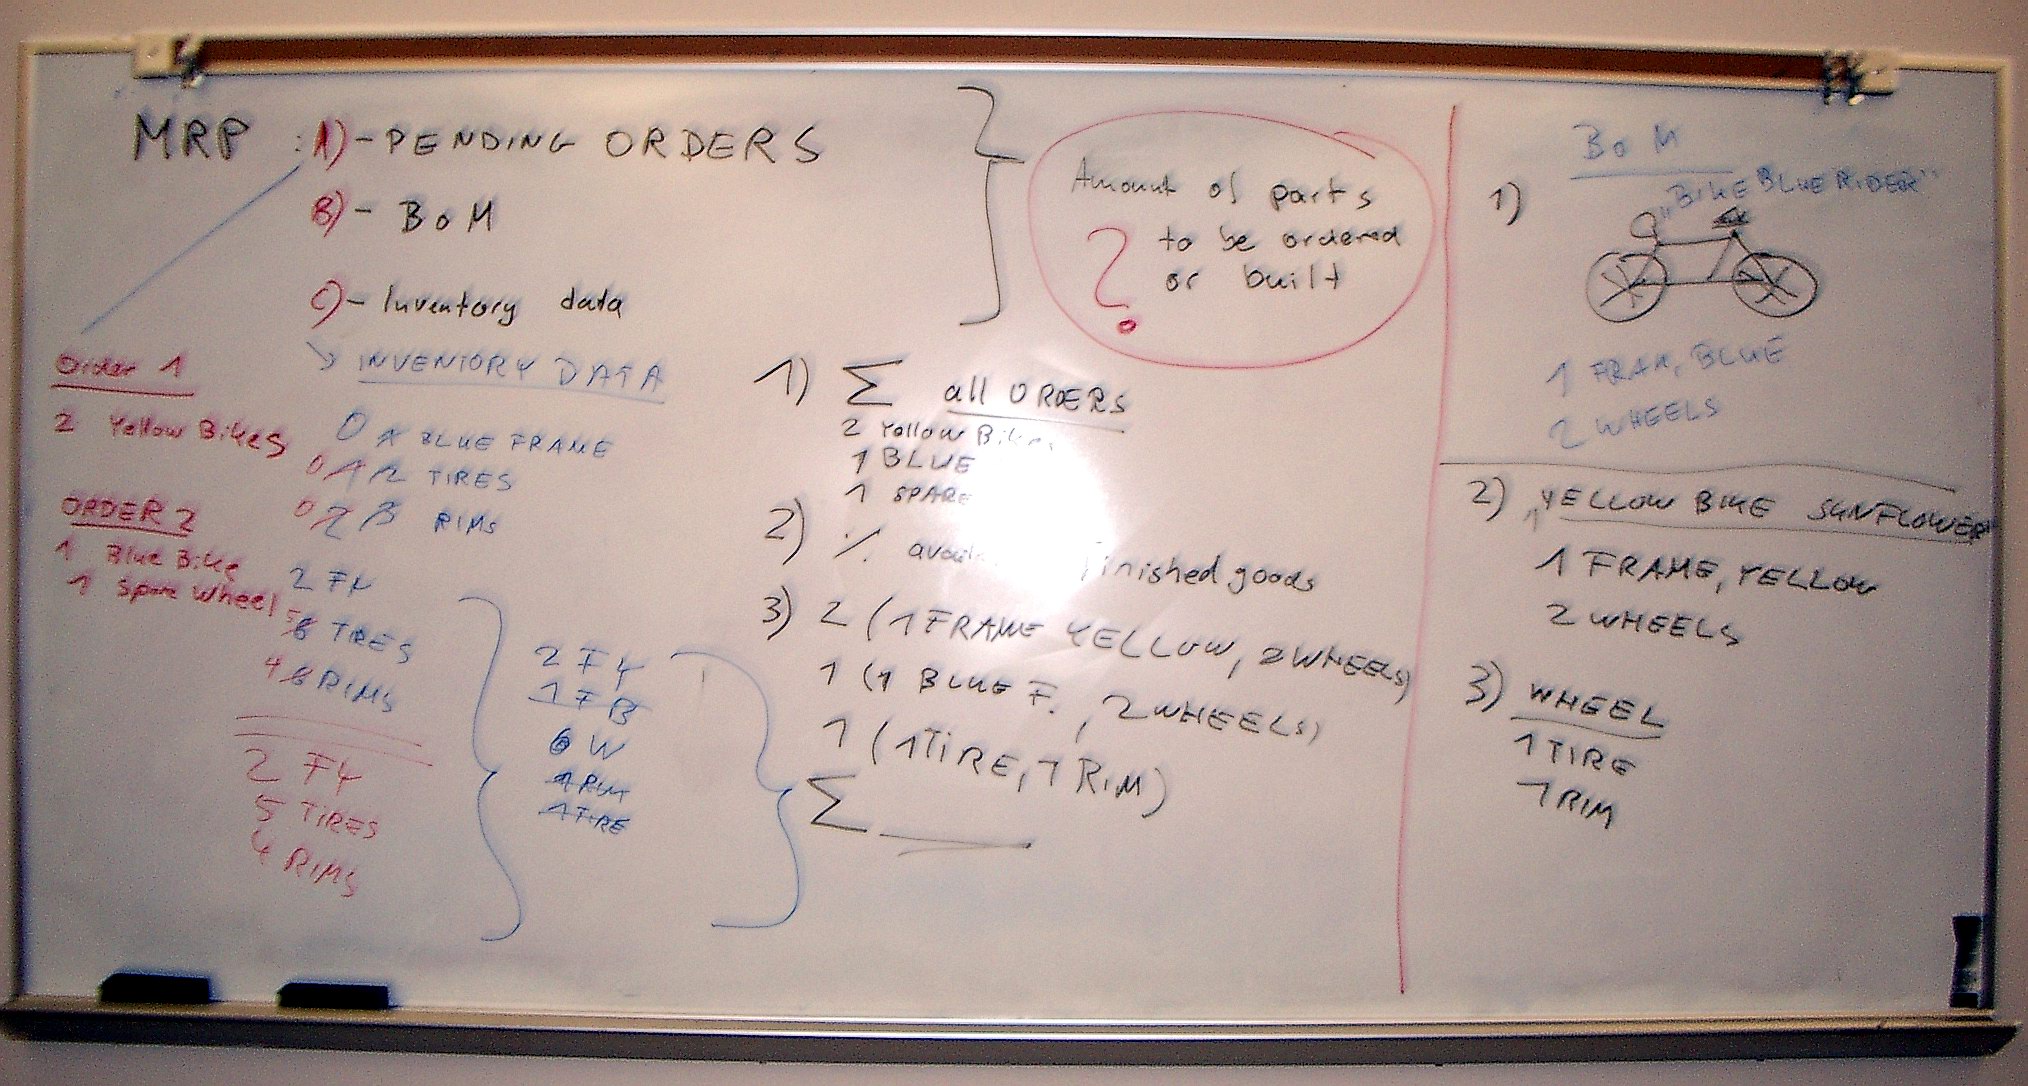 MRP : A) - PENDING ORDERS
B) - BoM
C) - Inventory data
Amount of parts
? to be ordered
or built
Order 1
2 Yellow Bikes
ORDER 2
1 Blue Bike
1 Spare Wheel
INVENTORY DATA
BLUE FRAME
TIRES
RIMS
TIRES
RIMS
2 FY
5 TIRES
4 RIMS
2 FY
1 FB
6 W
1 RIM
1 TIRE
1) Σ all ORDERS
2 Yellow Bikes
1 BLUE
1 SPARE
2) ./. finished goods
3) 2 (1 FRAME YELLOW, 2 WHEELS)
1 (1 BLUE F., 2 WHEELS)
1 (1 TIRE, 1 RIM)
Σ
BoM
1) "BIKE BLUE RIDER"
1 FRAM, BLUE
2 WHEELS
2) "YELLOW BIKE SUNFLOWER"
1 FRAME, YELLOW
2 WHEELS
3) WHEEL
1 TIRE
1 RIM